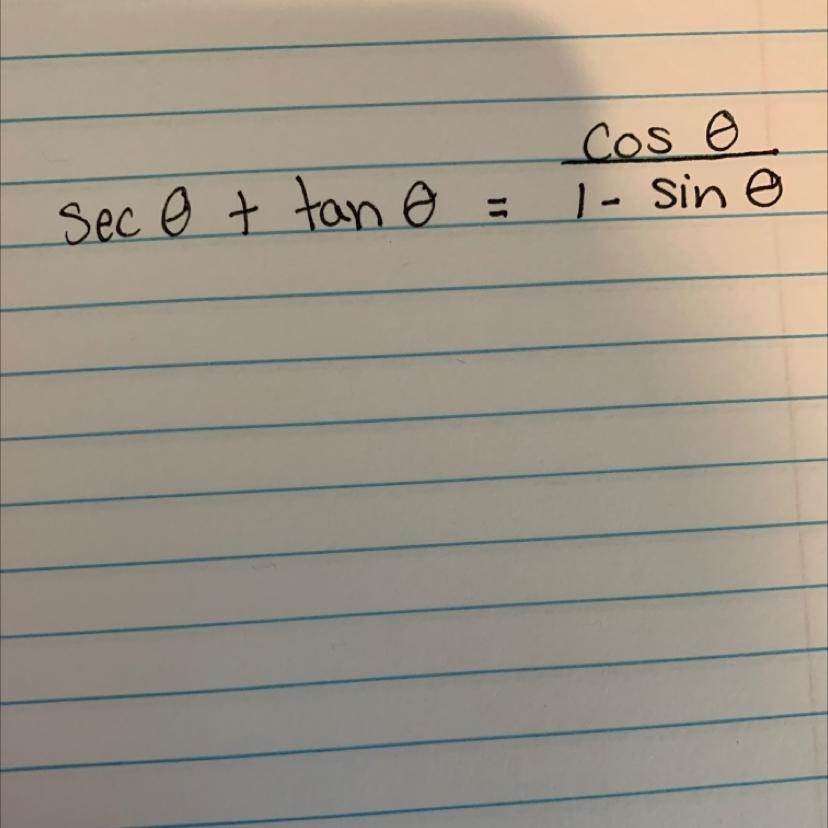 sec θ + tan θ = cos θ / 1 - sin θ